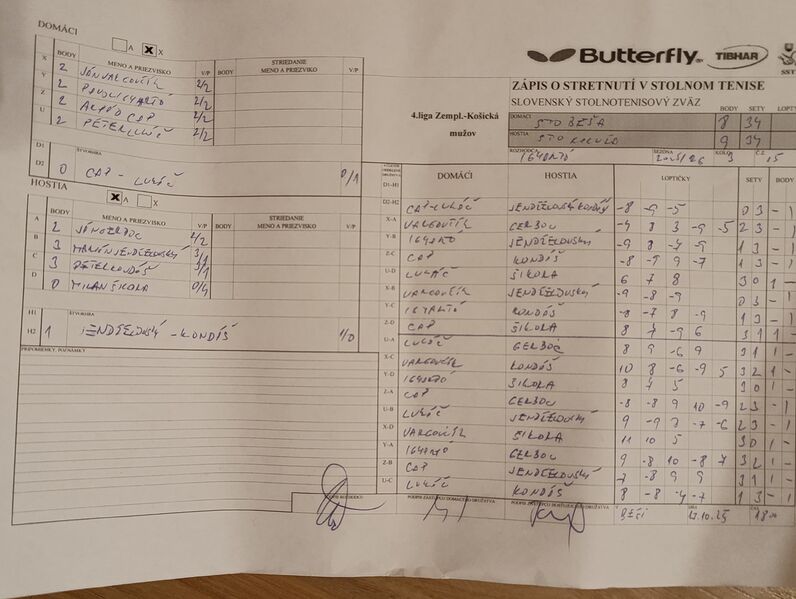 DOMÁCI
A X X
BODY MENO A PRIEZVISKO V/P BODY STRIEDANIE MENO A PRIEZVIKO V/P
X 2 JÁN VARGOVČÍK 2/2
Y 2 2/2
Z 2 ARPÁD CAP 2/2
U 2 PETER LUKÁČ 2/2
D1 ŠTVORHRA
D2 0 CAP - LUKÁČ 0/1
HOSTIA
X A X
BODY MENO A PRIEZVISKO V/P BODY STRIEDANIE MENO A PRIEZVISKO V/P
A 2 JÁN GERBOC 2/2
B 3 MARIÁN JENDŽELOVSKÝ 3/1
C 3 PETER KONDÁŠ 3/1
D 0 MILAN ŠIKORA 0/4
H1 ŠTVORHRA
H2 1 JENDŽELOVSKÝ - KONDÁŠ 1/0
PRIPOMIENKY, POZNÁMKY
Butterfly TIBHAR SST
ZÁPIS O STRETNUTÍ V STOLNOM TENISE
SLOVENSKÝ STOLNOTENISOVÝ ZVÄZ BODY SETY LOPT
4.liga Zempl.-Košická mužov
DOMÁCI STO BEŠA 8 34
HOSTIA STO 9 34
ROZHODCA SEZÓNA 2025/26 KOLO 3 Č.Z. 15
DOMÁCI HOSTIA LOPTIČKY SETY BODY
D1-H1
D2-H2 CAP-LUKÁČ JENDŽELOVSKÝ KONDÁŠ -8 -9 -5 0 3 - 1
X-A VARGOVČÍK GERBOC -4 8 3 -9 -5 2 3 - 1
Y-B JENDŽELOVSKÝ -9 8 -7 -9 1 3 - 1
Z-C CAP KONDÁŠ 1 3 - 1
U-D LUKÁČ ŠIKORA 6 7 8 3 0 1 -
X-B VARGOVČÍK JENDŽELOVSKÝ -9 -8 -9 0 3 - 1
Y-C KONDÁŠ -8 -7 8 -9 1 3 - 1
Z-D CAP ŠIKORA 8 7 -9 6 3 1 1 -
U-A LUKÁČ GERBOC 8 9 -6 9 3 1 1 -
X-C VARGOVČÍK KONDÁŠ 10 8 -6 -9 5 3 2 1 -
Y-D ŠIKORA 8 7 5 3 0 1 -
Z-A CAP GERBOC -8 -8 9 10 -9 2 3 - 1
U-B LUKÁČ JENDŽELOVSKÝ 9 -9 7 -7 -6 2 3 - 1
X-D VARGOVČÍK ŠIKORA 11 10 5 3 0 1 -
Y-A GERBOC 9 -8 10 -8 7 3 2 1 -
Z-B CAP JENDŽELOVSKÝ 7 -8 9 9 3 1 1 -
U-C LUKÁČ KONDÁŠ 8 -8 -4 -7 1 3 - 1
PODPIS ROZHODCU PODPIS ZÁSTUPCU DOMÁCEHO DRUŽSTVA PODPIS ZÁSTUPCU HOSŤUJÚCEHO DRUŽSTVA V DŇA
17.10.25 18